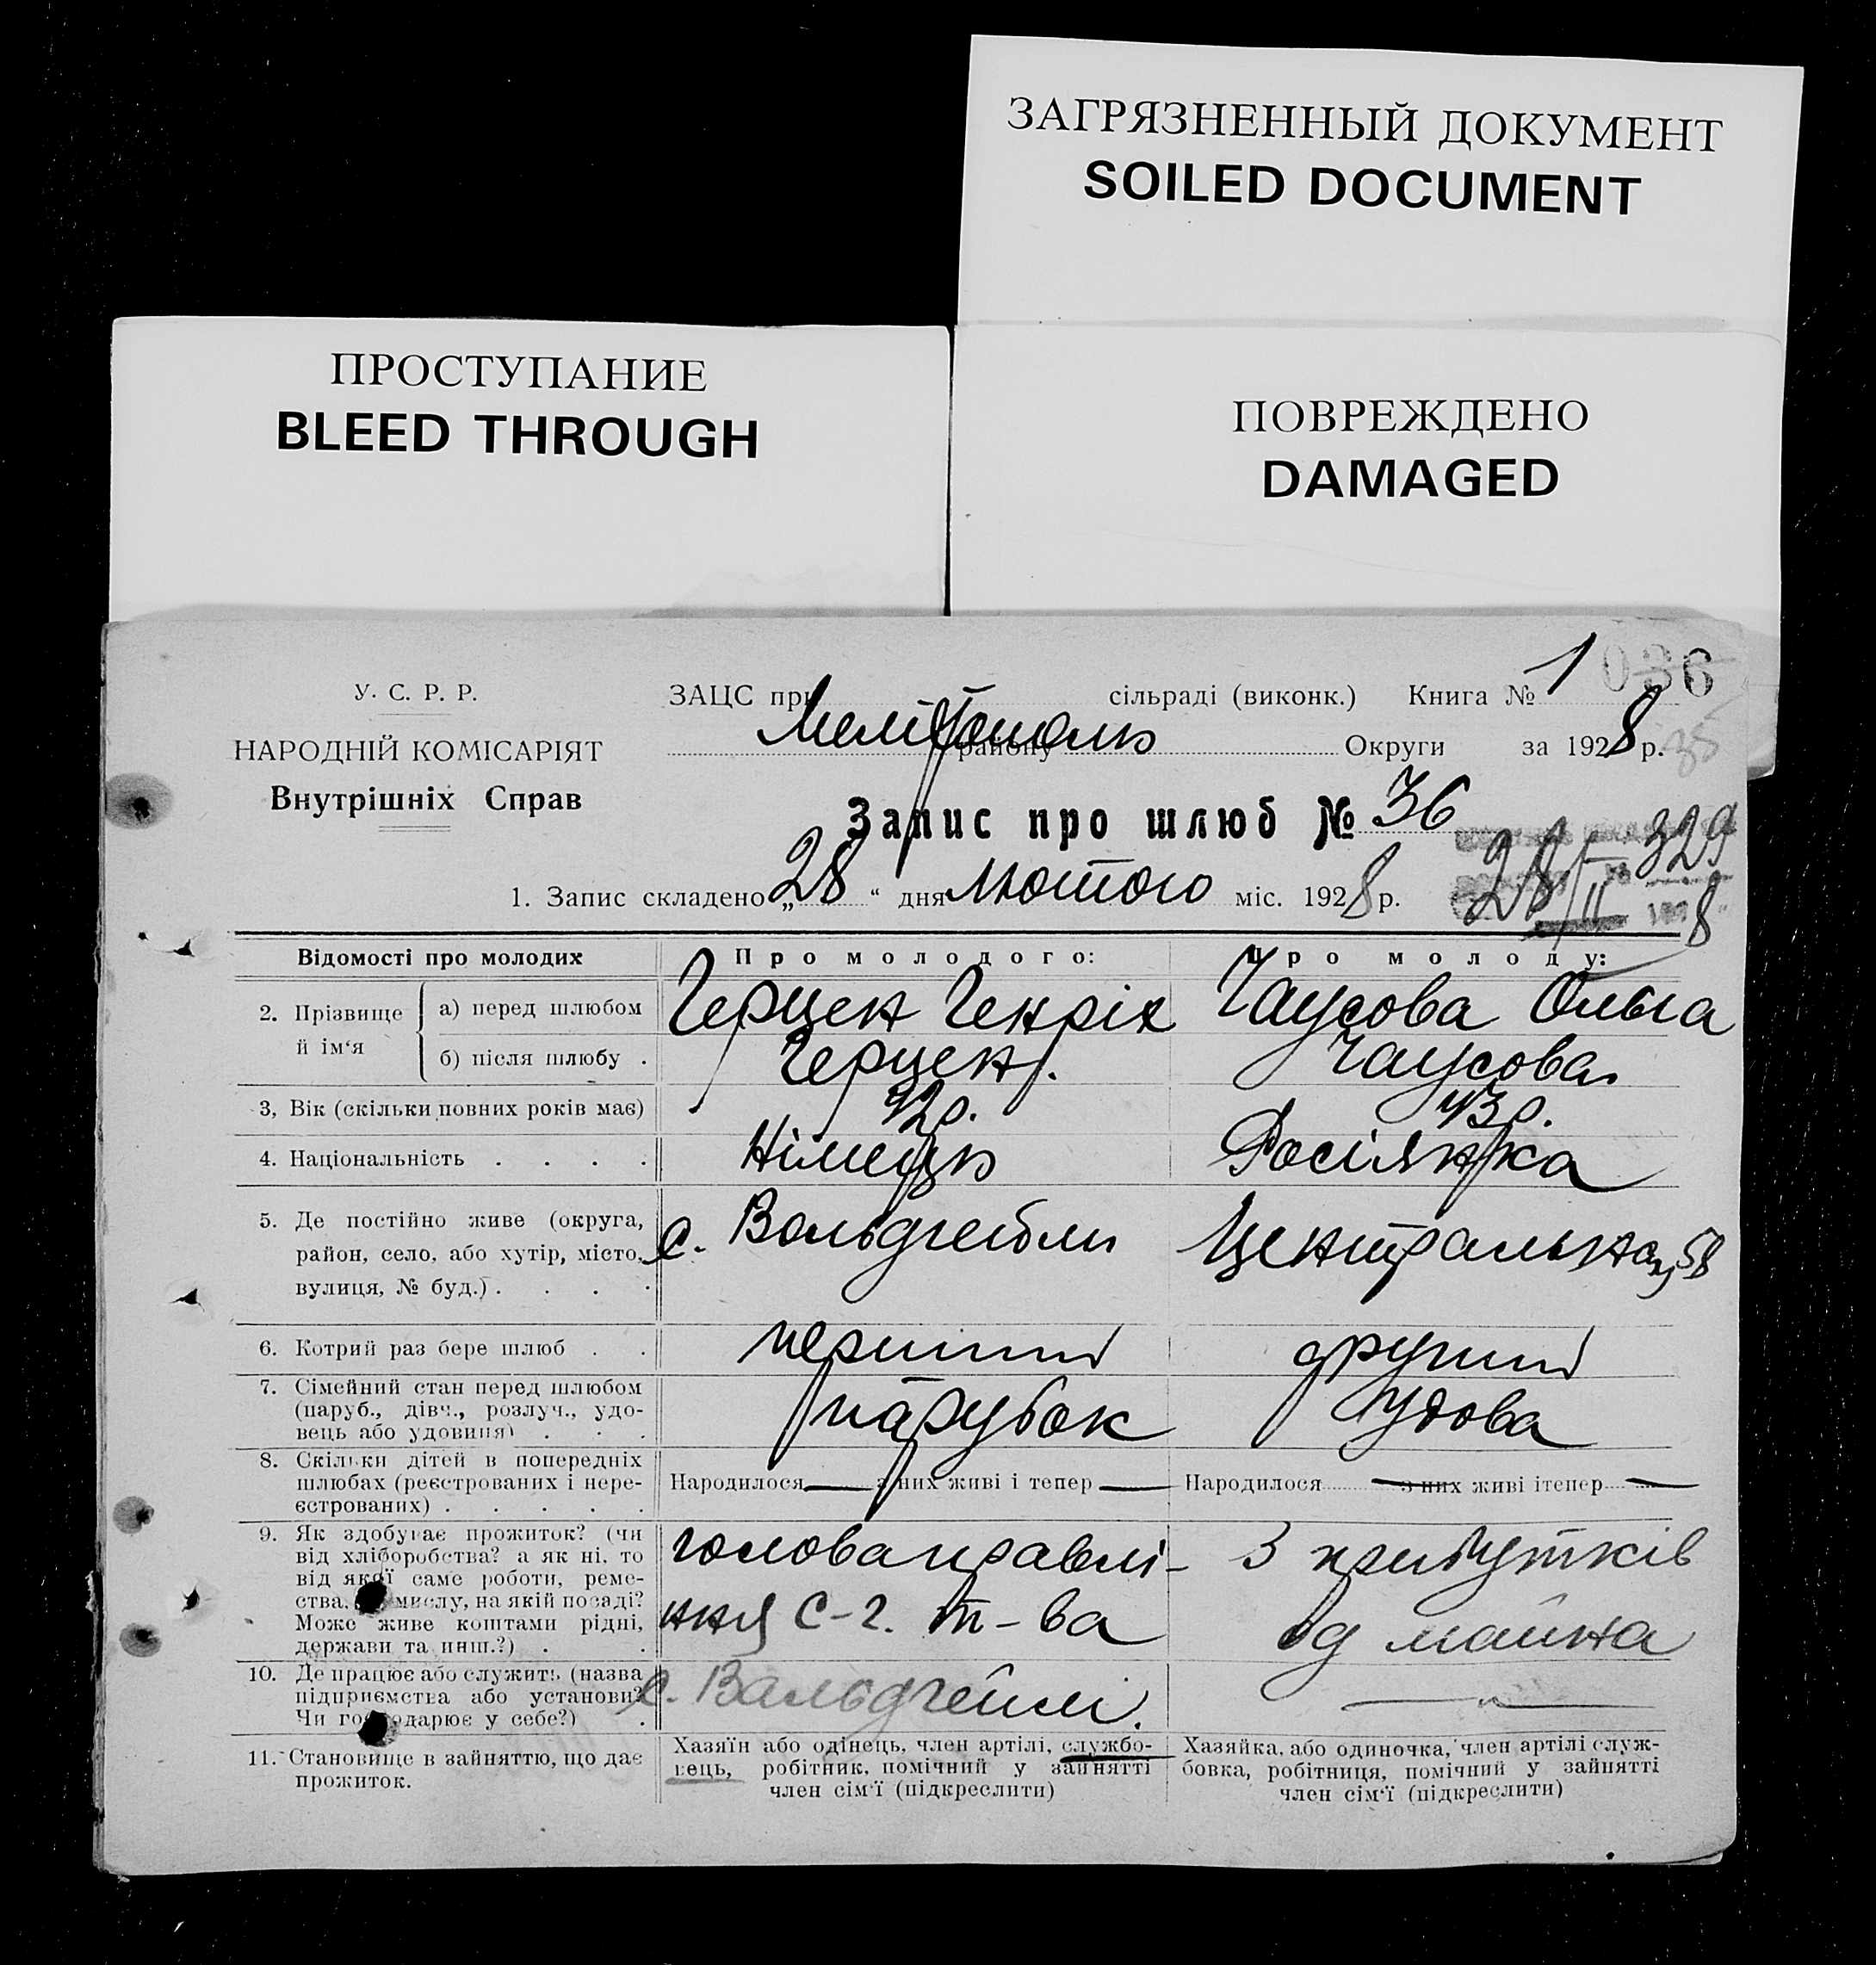 ЗАГРЯЗНЕННЫЙ ДОКУМЕНТ
SOILED DOCUMENT
ПРОСТУПАНИЕ
BLEED THROUGH
ПОВРЕЖДЕНО
DAMAGED
У. С. Р. Р.
НАРОДНІЙ КОМІСАРІЯТ
Внутрішніх Справ
ЗАЦС при сільраді (виконк.) Книга № 1 036
Мелітополь району Округи за 1928 р. 35
Запис про шлюб № 36
329
1. Запис складено „28“ дня Лютого міс. 1928 р. 28/II 8
Відомості про молодих
Про молодого:
Про молоду:
2. Прізвище й ім‘я
а) перед шлюбом
Герцен Генріх
Чаусова Ольга
б) після шлюбу .
Герцен.
Чаусова.
3, Вік (скільки повних років має)
42 р.
43 р.
4. Національність . . . .
Німець
Росіянка
5. Де постійно живе (округа,
район, село, або хутір, місто,
вулиця, № буд.) . . . .
с. Вальдгейм
Центральна, 58
6. Котрий раз бере шлюб . .
перший
другий
7. Сімейний стан перед шлюбом
(паруб., дівч., розлуч., удо-
вець або удовиця) . . .
парубок
Удова
8. Скільки дітей в попередніх
шлюбах (реєстрованих і нере-
єстрованих) . . . . .
Народилося — з них живі і тепер —
Народилося — з них живі ітепер —
9. Як здобуває прожиток? (чи
від хліборобства? а як ні, то
від якої саме роботи, реме-
ства, мислу, на якій посаді?
Може живе коштами рідні,
держави та инш.?) . .
голова правлі-
ння С-г. т-ва
З прибутків
од майна
10. Де працює або служить (назва
підприємства або установи?
Чи господарює у себе?) .
с. Вальдгеймі.
— „ —
11. Становище в зайняттю, що дає
прожиток.
Хазяїн або одінець, член артілі, службо-
вець, робітник, помічний у зайнятті
член сім‘ї (підкреслити)
Хазяйка, або одиночка, член артілі служ-
бовка, робітниця, помічний у зайнятті
член сім‘ї (підкреслити)